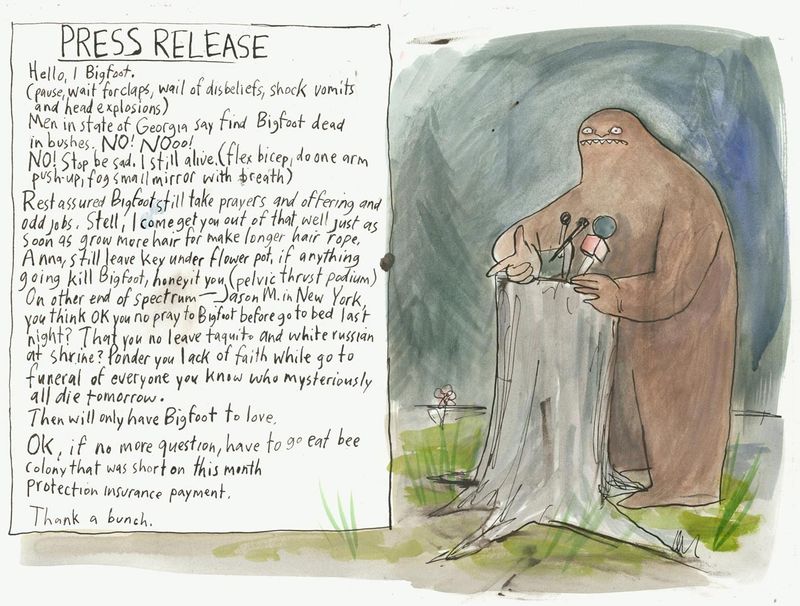 PRESS RELEASE
Hello, I Bigfoot.
(pause, wait for claps, wail of disbeliefs, shock vomits
and head explosions)
Men in state of Georgia say find Bigfoot dead
in bushes. NO! NOoo!
NO! Stop be sad. I still alive. (flex bicep, do one arm
push-up, fog small mirror with breath)
Rest assured Bigfoot still take prayers and offering and
odd jobs. Stell, I come get you out of that well just as
soon as grow more hair for make longer hair rope.
Anna, still leave key under flower pot, if anything
going kill Bigfoot, honey it you (pelvic thrust podium)
On other end of spectrum — Jason M. in New York,
you think OK you no pray to Bigfoot before go to bed last
night? That you no leave taquito and white russian
at shrine? Ponder you lack of faith while go to
funeral of everyone you know who mysteriously
all die tomorrow.
Then will only have Bigfoot to love.
OK, if no more question, have to go eat bee
colony that was short on this month
protection insurance payment.
Thank a bunch.